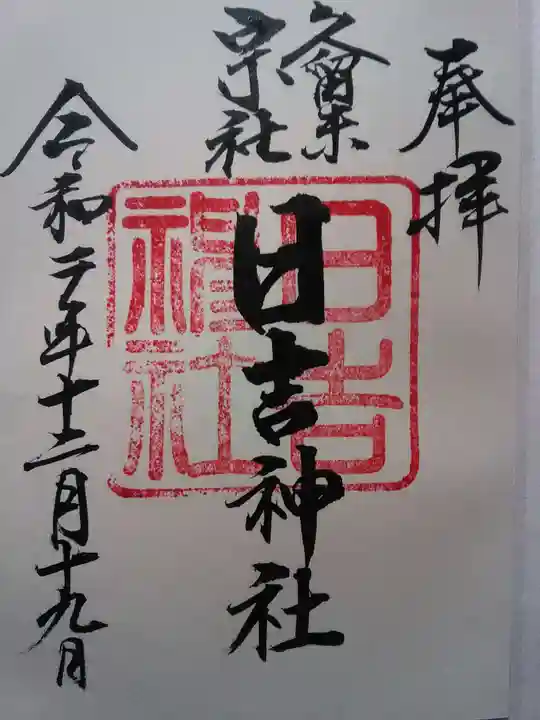 奉拝
久留米
宗社
日吉神社
日吉神社
令和二年十二月十九日